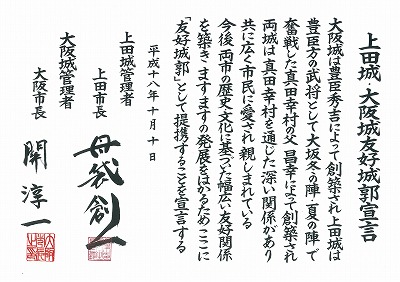 上田城・大阪城友好城郭宣言
大阪城は豊臣秀吉によって創築され上田城は
豊臣方の武将として大坂冬の陣・夏の陣で
奮戦した真田幸村の父昌幸によって創築され
両城は真田幸村を通じた深い関係があり
共に広く市民に愛され親しまれている
今後両市の歴史文化に基づいた幅広い友好関係
を築きますますの発展をはかるためここに
「友好城郭」として提携することを宣言する
平成十八年十月十日
上田城管理者
上田市長
母袋創一
大阪城管理者
大阪市長
関淳一